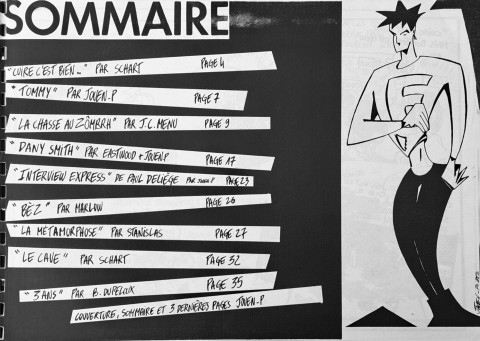 SOMMAIRE
"CUIRE C'EST BIEN..." PAR SCHART PAGE 4
"TOMMY" PAR JOVEN.P PAGE 7
"LA CHASSE AU ZÔMRRH" PAR J.C. MENU PAGE 9
"DANY SMITH" PAR EASTWOOD + JOVEN.P PAGE 17
"INTERVIEW EXPRESS" DE PAUL DELIÉGE PAR JOVEN P PAGE 23
"BÈZ" PAR MARLOW PAGE 26
"LA METAMORPHOSE" PAR STANISLAS PAGE 27
"LE CAVE" PAR SCHART PAGE 32
"3 ANS" PAR B. DUPELOUX PAGE 35
COUVERTURE, SOMMAIRE ET 3 DERNIÈRES PAGES JOVEN.P